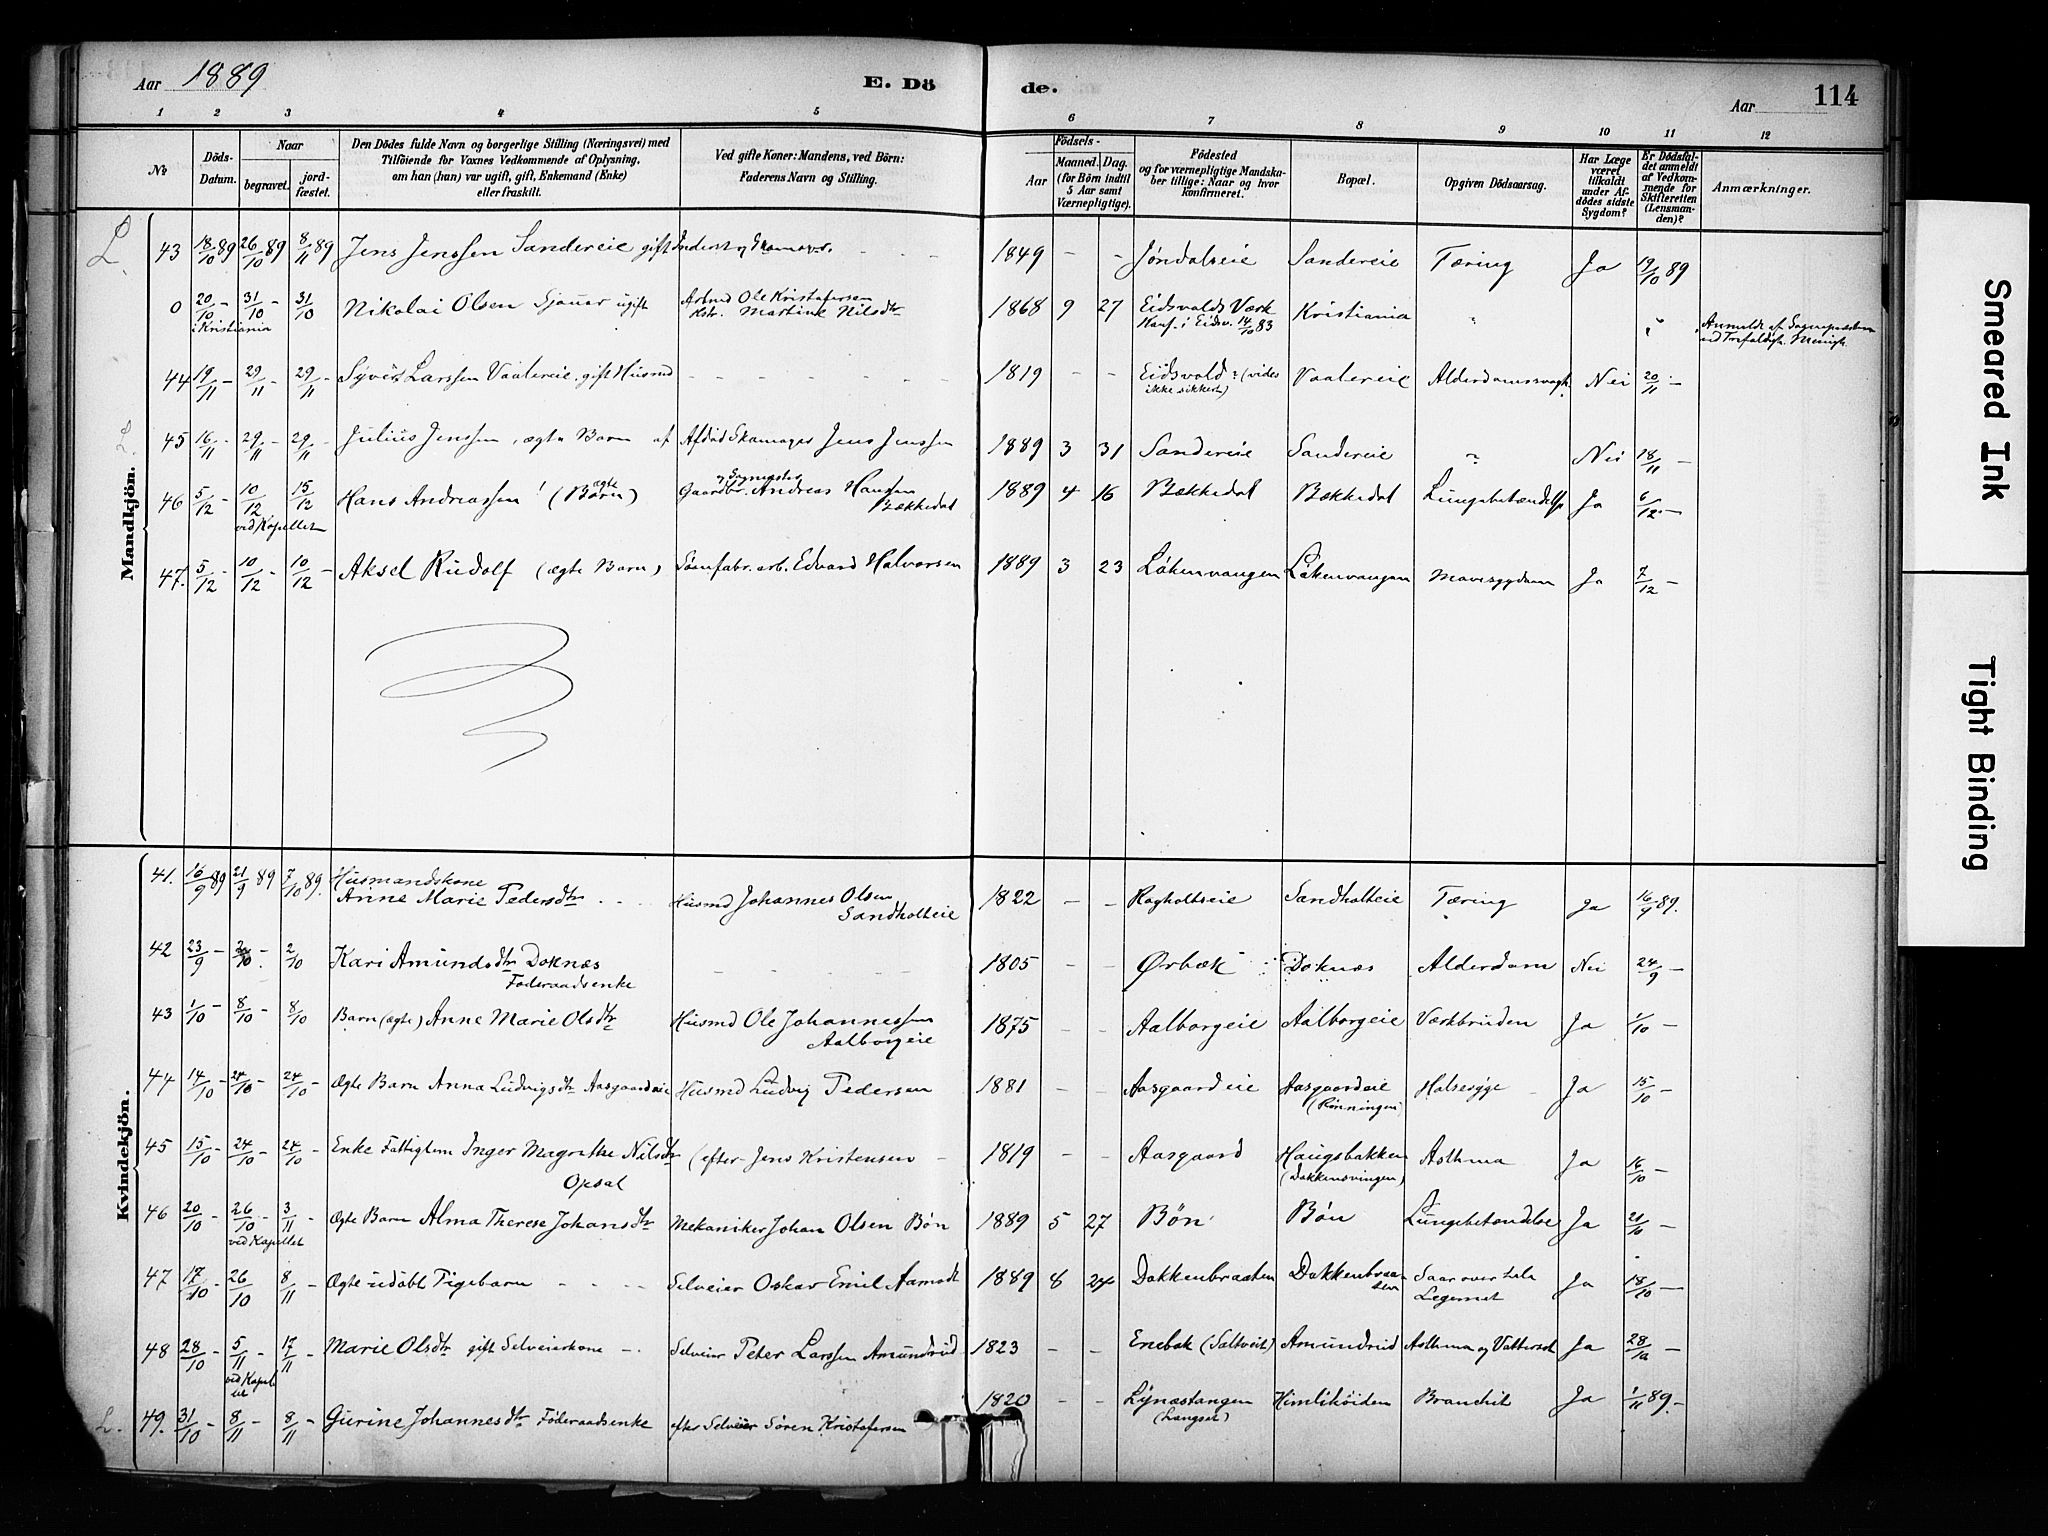 Aar 1889
E. Dö
de.
Aar
114
1 2 3 4 5 6 7 8 9 10 11 12
№
Döds-Datum.
Naar
begravet.
jord-fæstet.
Den Dödes fulde Navn og borgerlige Stilling (Næringsvei) med
Tilföiende for Voxnes Vedkommende af Oplysning,
om han (hun) var ugift, gift, Enkemand (Enke)
eller fraskilt.
Ved gifte Koner: Mandens, ved Börn:
Faderens Navn og Stilling.
Födsels-
Aar
Maaned. Dag.
(for Börn indtil
5 Aar samt
Værnepligtige).
Födested
og for værnepligtige Mandska-
ber tillige: Naar og hvor
konfirmeret.
Bopæl.
Opgiven Dödsaarsag.
Har Læge
været
tilkaldt
under Af-
dödes sidste
Sygdom?
Er Dödsfal-
det anmeldt
af Vedkom-
mende for
Skifteretten
(Lensman-
den)?
Anmærkninger.
Mandkjön.
L. 43 18/10 89 26/10 89 8/11 89 Jens Jenssen Sandereie gift Inderst og Skomager. 1849 - - Jøndalseie Sandereie Tæring Ja 19/10 89
0 20/10 - 31/10 - 31/10 Nikolai Olsen Sjauer ugift Arbmd Ole Kristofersen 1868 9 27 Eidsvolds Værk Kristiania
i Kristiania Martine Nilsdtr Konf. i Eidsv. 14/10 83 Anmeldt af Sognepræsten
ved Trefoldigh. Menigh.
44 19/11 - 29/11 - 29/11 - Syver Larssen Vaalereie, gift Husmd - - - 1819 - - Eidsvold? (vides Vaalereie Alderdomssvagh. Nei 20/11 -
ikke sikkert)
L 45 16/11 - 29/11 - 29/11 - Julius Jenssen, ægte Barn af Afdød Skomager Jens Jenssen 1889 3 31 Sandereie Sandereie ? Nei 18/11 -
46 5/12 - 10/12 15/12 Hans Andreassen (ægte Barn) Gaardbr. Andreas Hansen 1889 4 16 Bækkedal Bækkedal Lungebetændelse Ja 6/12 -
ved Kapellet Bækkedal
47. 5/12 - 10/12 - 10/12 - Aksel Rudolf (ægte Barn) Sømfabr. arb. Edvard Halvorsen 1889 3 23 Løkenvangen Løkenvangen Mavesygdom Ja 7/12 -
Kvindekjön.
41. 16/9 89 21/9 89 7/10 89. Husmandskone
Anne Marie Pedersdtr Husmd Johannes Olsen 1822 - - Rogholtseie Sandholteie Tæring Ja 16/9 89.
Sandholteie
42 23/9 - 2/10 - 2/10 Kari Amundsdtr Doknæs - - - 1805 - - Ørbæk Doknæs Alderdom Nei 24/9 -
Føderaadsenke
43 1/10 - 8/10 - 8/10 Barn (ægte) Anne Marie Olsdtr Husmd Ole Johannessen 1875 - - Aalborgeie Aalborgeie Værkbruden Ja 1/10 -
Aalborgeie
44 14/10 - 24/10 - 24/10 - Ægte Barn Anna Ludvigsdtr Aasgaardeie Husmd Ludvig Pedersen 1881 - - Aasgaardeie Aasgaardeie Halssyge - Ja 15/10 -
(Rønningen)
45 15/10 - 24/10 - 24/10 - Enke Fattiglem Inger Magrethe Nilsdtr (efter Jens Kristensen - 1819 - - Aasgaard Haugsbakken Asthma Ja 16/10 -
Opsal (Dokkensvingen)
46 20/10 - 26/10 - 3/11 - Ægte Barn Alma Therese Johansdtr Mekaniker Johan Olsen Bøn 1889 5 27 Bøn Bøn Lungebetændelse Ja 21/10 -
ved Kapellet
47 17/10 - 26/10 8/11 - Ægte udøbt Pigebarn - - - Selveier Oskar Emil Aamodt 1889 8 24 Dokkenbraaten Dokkenbraa- Saar over hele Ja 18/10 -
ten Legemet
48 28/10 - 5/11 - 17/11 - Marie Olsdtr gift Selveierkone - Selveier Peter Larssen Amundrud 1823 - - Enebak (Saltveit) Amundrud Asthma og Vattersot Ja 28/10 -
ved Kapel-
let
L. 49. 31/10 - 8/11 - 8/11 - Gurine Johannesdtr Føderaadsenke efter Selveier Søren Kristofersen 1820 - - Lynæstangen Himlihøiden Bronchit Ja 1/11 89 -
(Langset)
Smeared Ink
Tight Binding